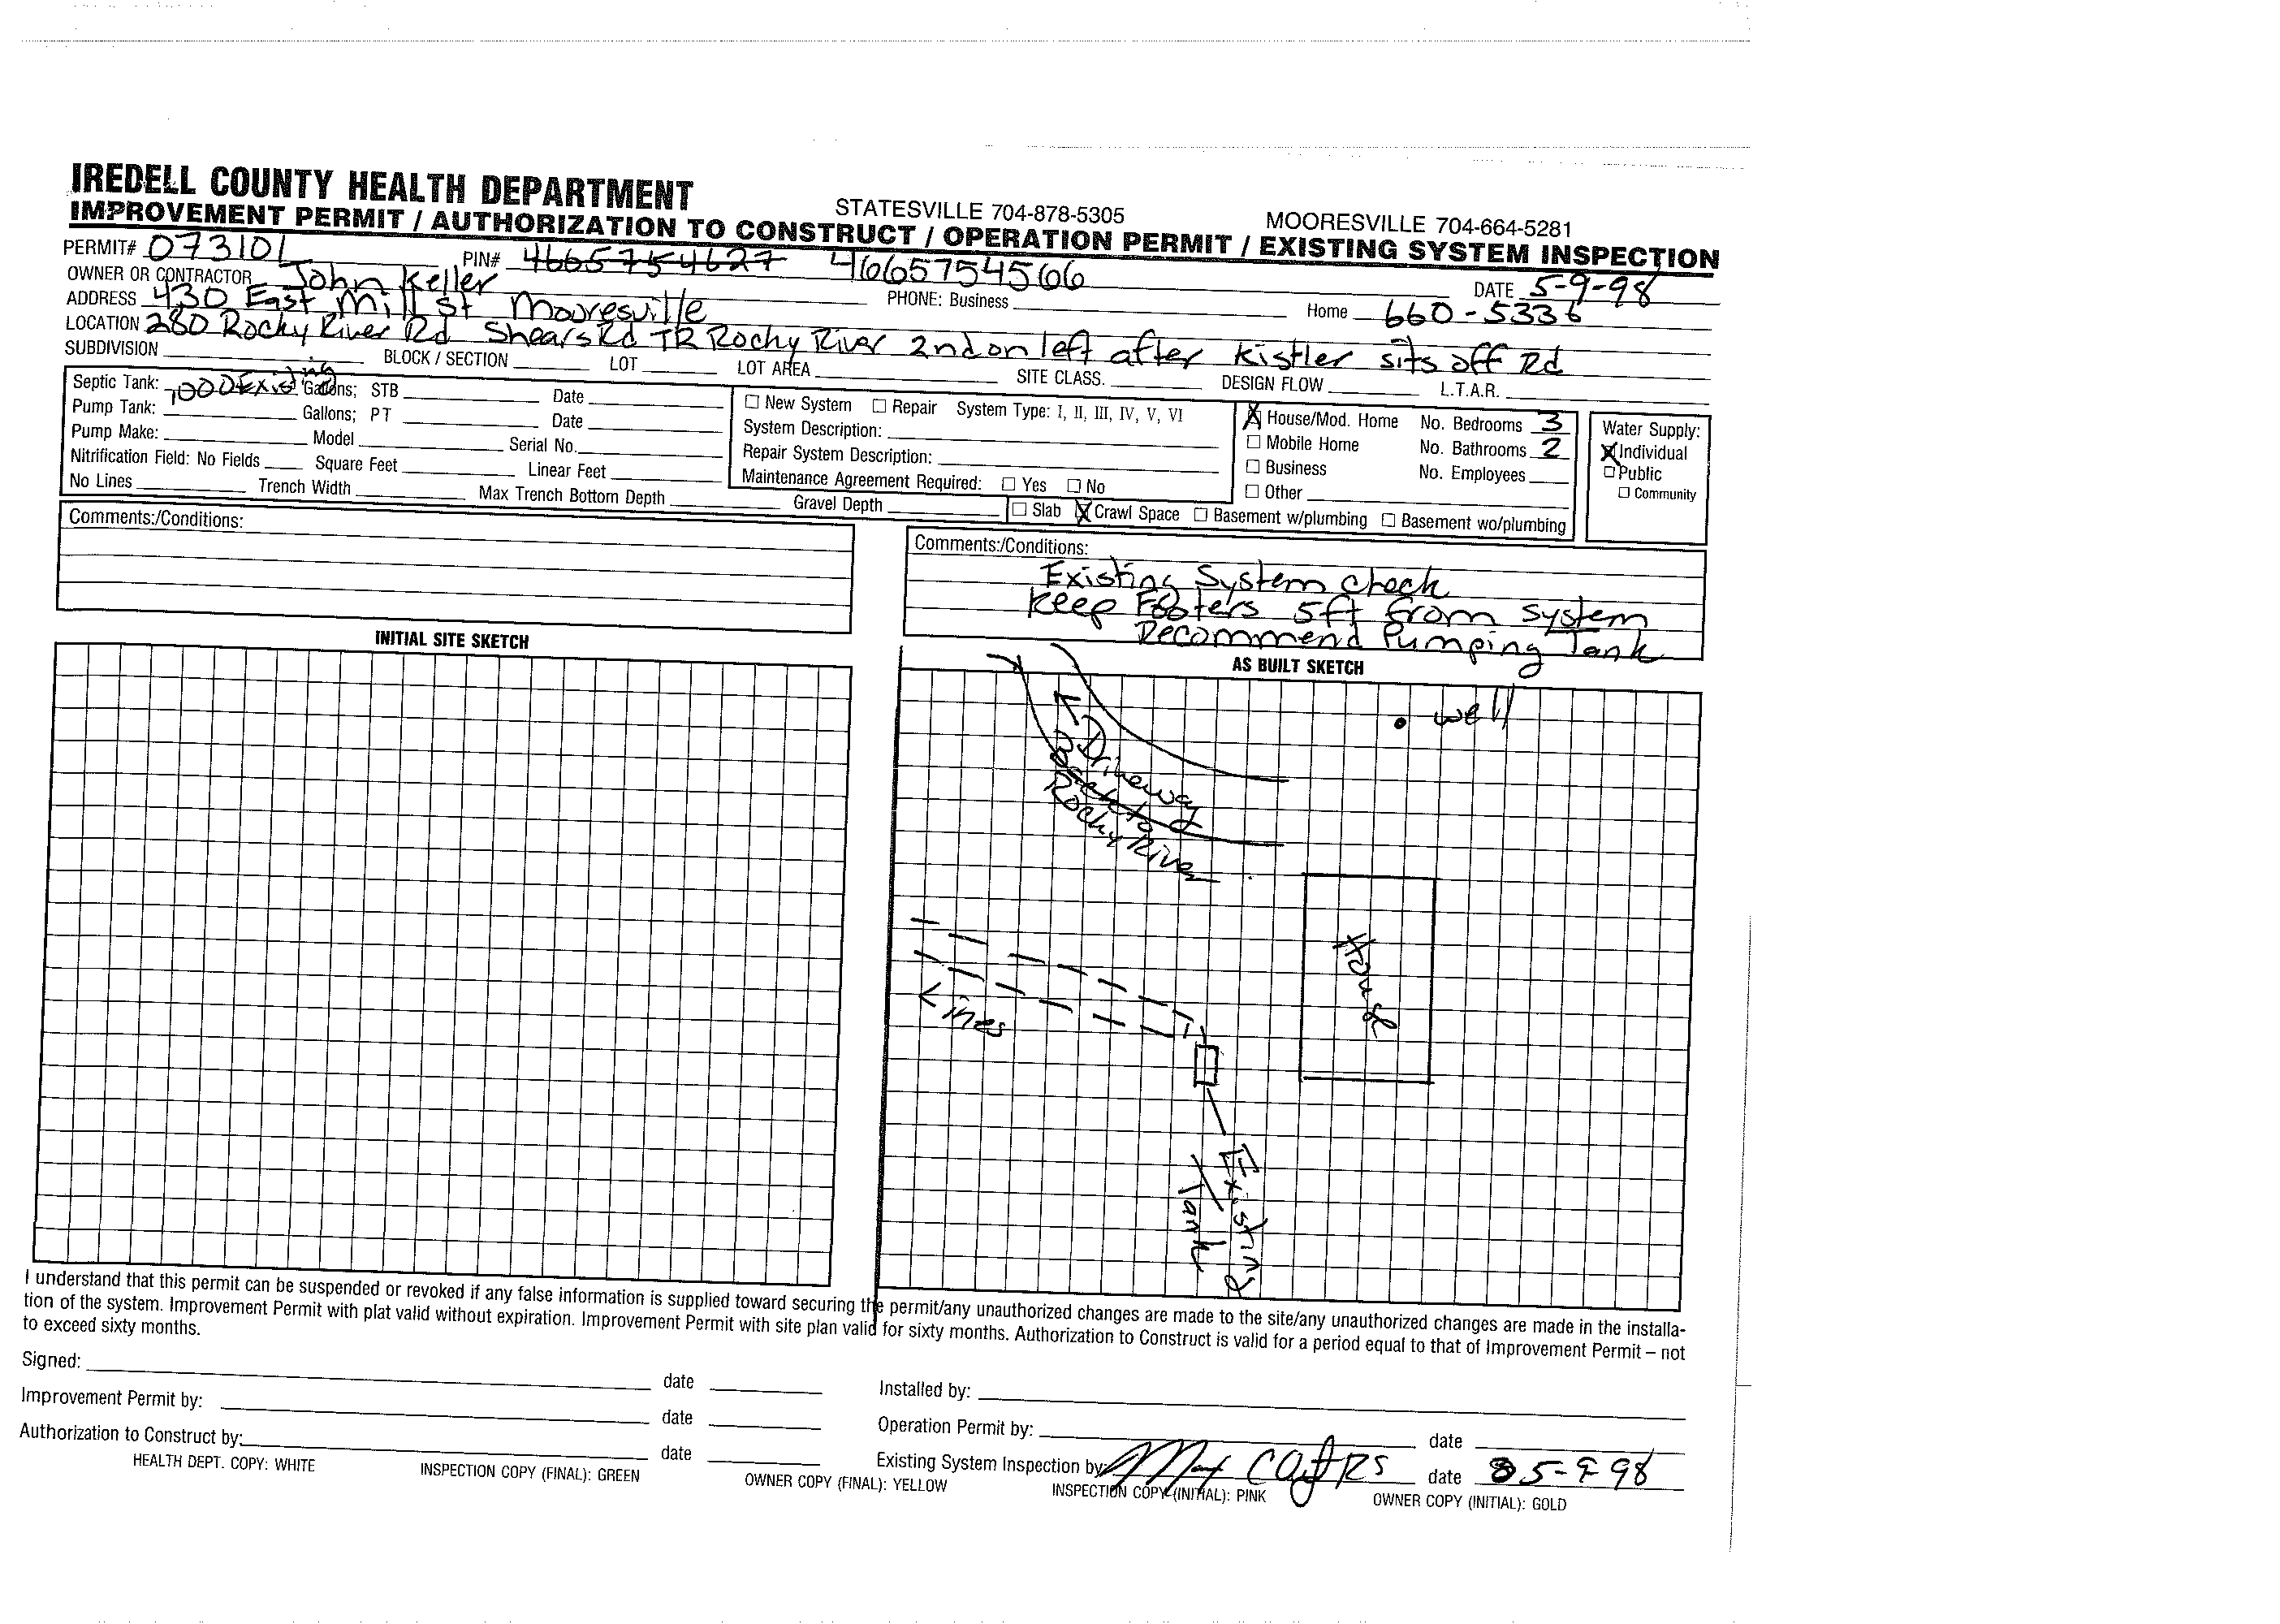 IREDELL COUNTY HEALTH DEPARTMENT
STATESVILLE 704-878-5305 MOORESVILLE 704-664-5281
IMPROVEMENT PERMIT / AUTHORIZATION TO CONSTRUCT / OPERATION PERMIT / EXISTING SYSTEM INSPECTION
PERMIT# 073101 PIN# 4665754627 4665754566 DATE 5-9-98
OWNER OR CONTRACTOR John Keller PHONE: Business Home 660-5336
ADDRESS 430 East Mill St Mooresville
LOCATION 280 Rocky River Rd Shears Rd TR Rocky River 2nd on left after Kistler sits off Rd
SUBDIVISION BLOCK / SECTION LOT LOT AREA SITE CLASS. DESIGN FLOW L.T.A.R.
Septic Tank: 1000 Existing Gallons; STB Date
Pump Tank: Gallons; PT Date
Pump Make: Model Serial No.
Nitrification Field: No Fields Square Feet Linear Feet
No Lines Trench Width Max Trench Bottom Depth Gravel Depth
☐ New System ☐ Repair System Type: I, II, III, IV, V, VI
System Description:
Repair System Description:
Maintenance Agreement Required: ☐ Yes ☐ No
☒ House/Mod. Home No. Bedrooms 3
☐ Mobile Home No. Bathrooms 2
☐ Business No. Employees
☐ Other
☐ Slab ☒ Crawl Space ☐ Basement w/plumbing ☐ Basement wo/plumbing
Water Supply:
☒ Individual
☐ Public
☐ Community
Comments:/Conditions:
Comments:/Conditions:
Existing System Check
Keep Footers 5ft from system
Recommend Pumping Tank
INITIAL SITE SKETCH
AS BUILT SKETCH
well
Driveway
Back to
Rocky River
House
Lines
Existing
Tank
I understand that this permit can be suspended or revoked if any false information is supplied toward securing the permit/any unauthorized changes are made to the site/any unauthorized changes are made in the installa-
tion of the system. Improvement Permit with plat valid without expiration. Improvement Permit with site plan valid for sixty months. Authorization to Construct is valid for a period equal to that of Improvement Permit – not
to exceed sixty months.
Signed: date
Improvement Permit by: date
Authorization to Construct by: date
Installed by:
Operation Permit by: date
Existing System Inspection by: date 5-9-98
HEALTH DEPT. COPY: WHITE INSPECTION COPY (FINAL): GREEN OWNER COPY (FINAL): YELLOW INSPECTION COPY (INITIAL): PINK OWNER COPY (INITIAL): GOLD